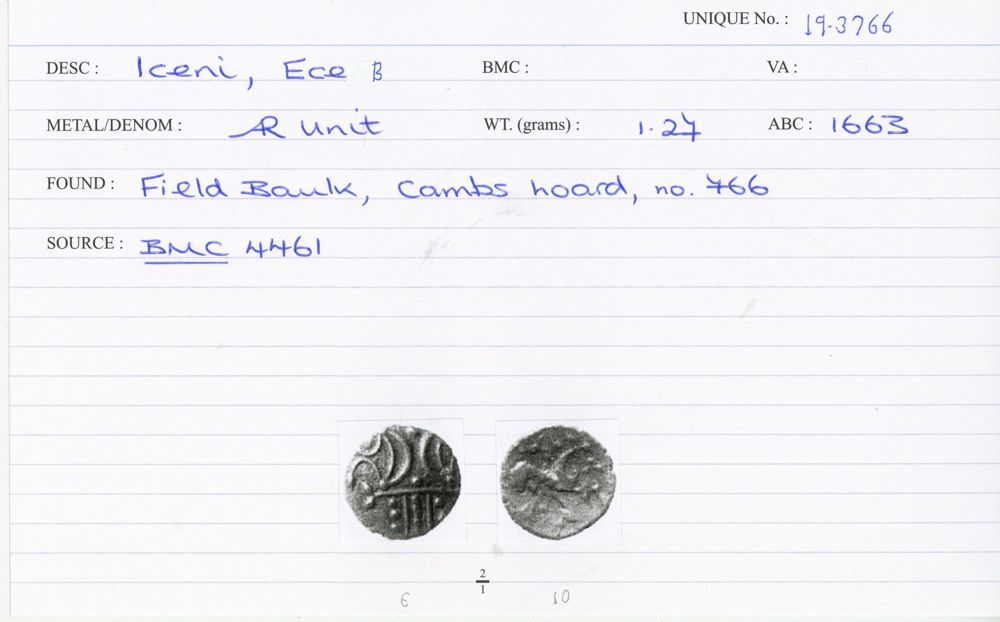 UNIQUE No. : 19-3766
DESC : Iceni, Ece B BMC : VA :
METAL/DENOM : AR Unit WT. (grams) : 1.27 ABC : 1663
FOUND : Field Baulk, Cambs hoard, no. 766
SOURCE : BMC 4461
2
1
6 10